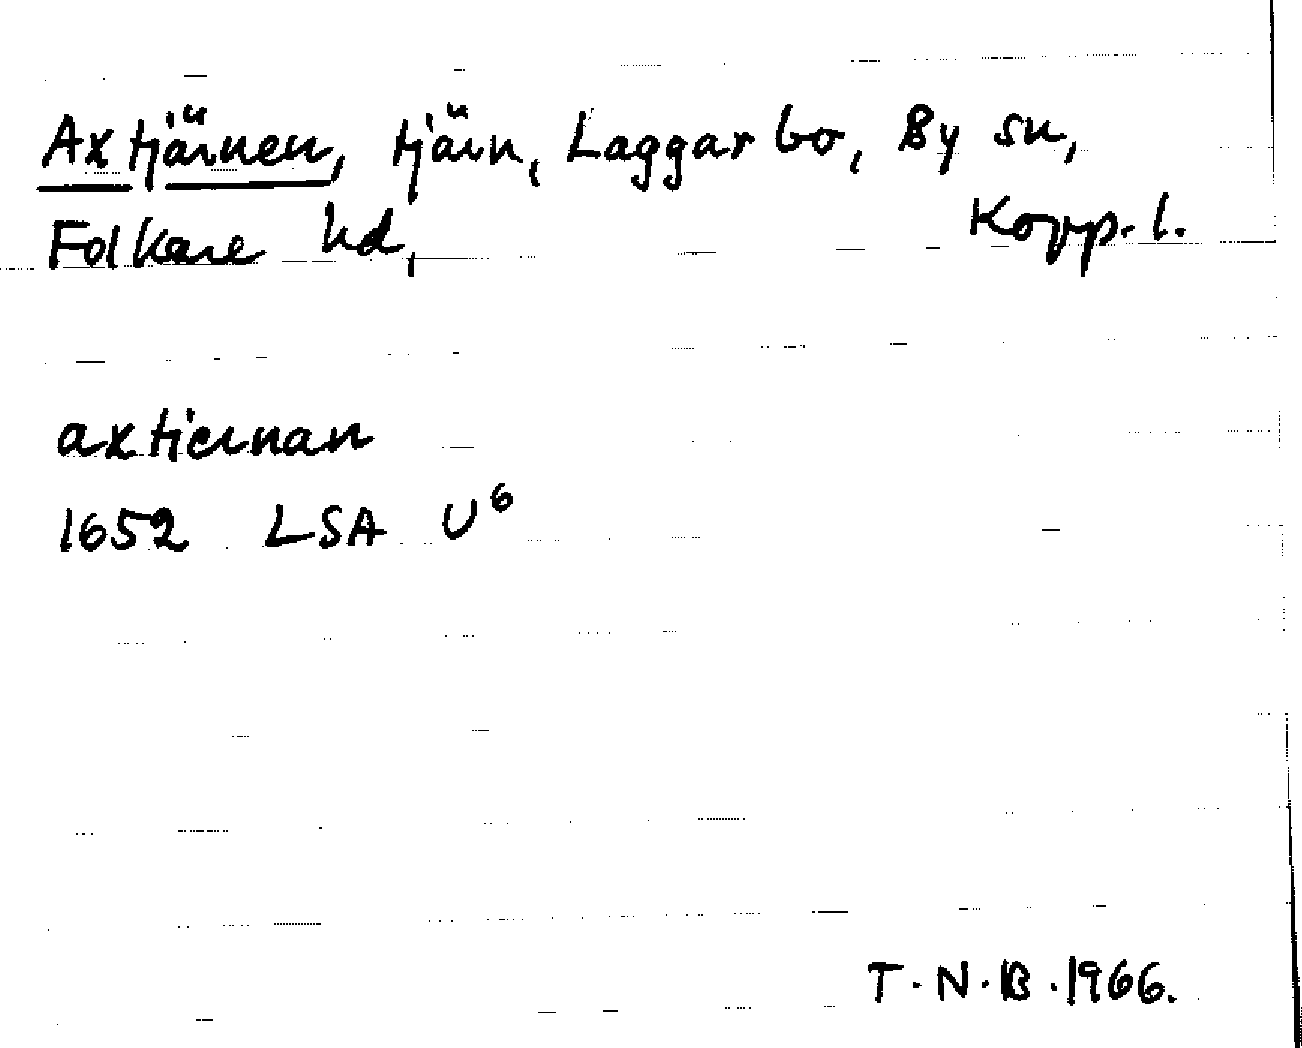 Axtjärnen, tjärn, Laggarbo, By sn,
Folkare hd, Kopp. l.
axtiernan
1652 LSA U⁶
T.N.B. 1966.